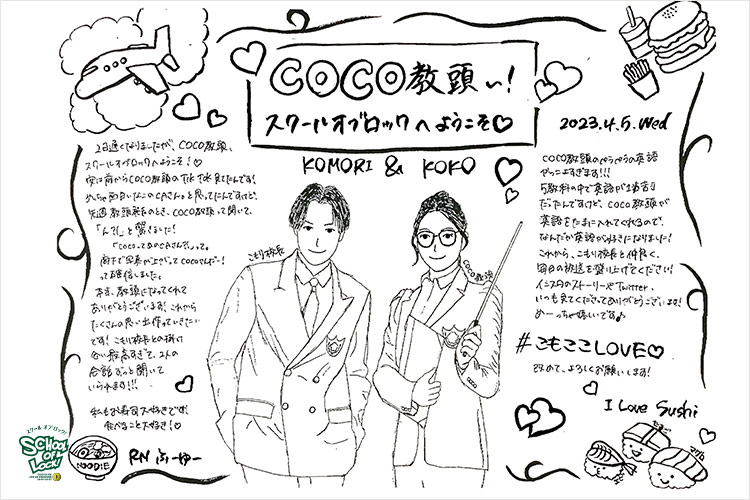 COCO教頭ぃ!
スクールオブロックへようこそ♡
2023.4.5.Wed
KOMORI & KOKO
2日遅くなりましたが、COCO教頭、
スクールオブロックへようこそ!♡
実は前からCOCO教頭のTikTok見てたんです!
「COCOってあのCAさん?」って。
って確信しました。
本当、教頭になってくれて
ありがとうございます!これから
たくさんの思い出作っていきたい
です!こもり校長との掛け
合い最高すぎて、2人の
会話ずっと聞いて
いられます!!!
私もお寿司大好きです!
食べること大好き!♡
RN ふーゆー
こもり校長
COCO教頭
COCO教頭のぺらぺらの英語
かっこよすぎます!!!
5教科の中で英語がいちばん苦手
だったんですけど、COCO教頭が
英語をたまに入れてくれるので、
なんだか英語が好きになりました!
これから、こもり校長と仲良く、
毎日の放送を盛り上げてください!
インスタのストーリーやTwitter、
いつも見てくださってありがとうございます!
めーっちゃ嬉しいです♪
#こもここLOVE♡
改めて、よろしくお願いします!
I Love Sushi
スクール オブ ロック!
SCHOOL
OF
LOCK!
NOODLE